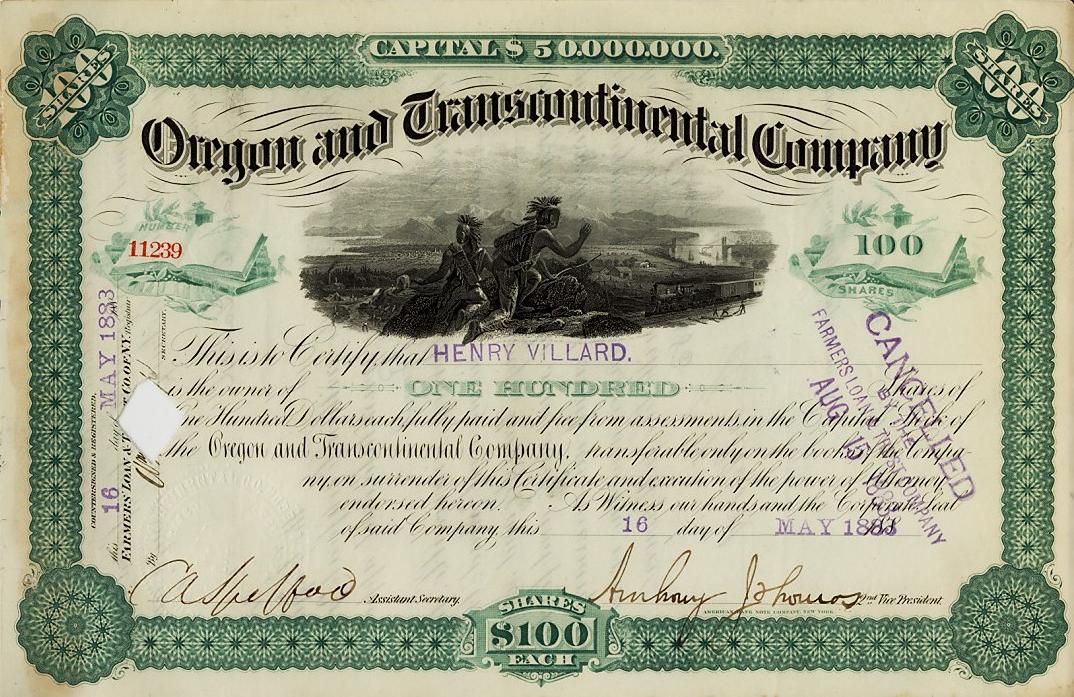 CAPITAL $50.000.000.
100 SHARES
100 SHARES
Oregon and Transcontinental Company
NUMBER
11239
100
SHARES
This is to Certify, that HENRY VILLARD.
is the owner of ONE HUNDRED Shares of
One Hundred Dollars each, fully paid and free from assessments, in the Capital Stock of
the Oregon and Transcontinental Company, transferable only on the books of the Compa-
ny, on surrender of this Certificate and execution of the power of Attorney,
endorsed hereon. As Witness our hands and the Corporate Seal
of said Company, this 16 day of MAY 1883
Assistant Secretary.
Anthony J Thomas 2nd Vice President.
AMERICAN BANK NOTE COMPANY, NEW YORK
SHARES
$100
EACH
COUNTERSIGNED & REGISTERED,
this 16 day of MAY 1883
FARMERS LOAN & CO. OF N.Y. Registrar
By
SECRETARY.
CANCELLED
BY THE
FARMERS LOAN TRUST COMPANY
AUG 15